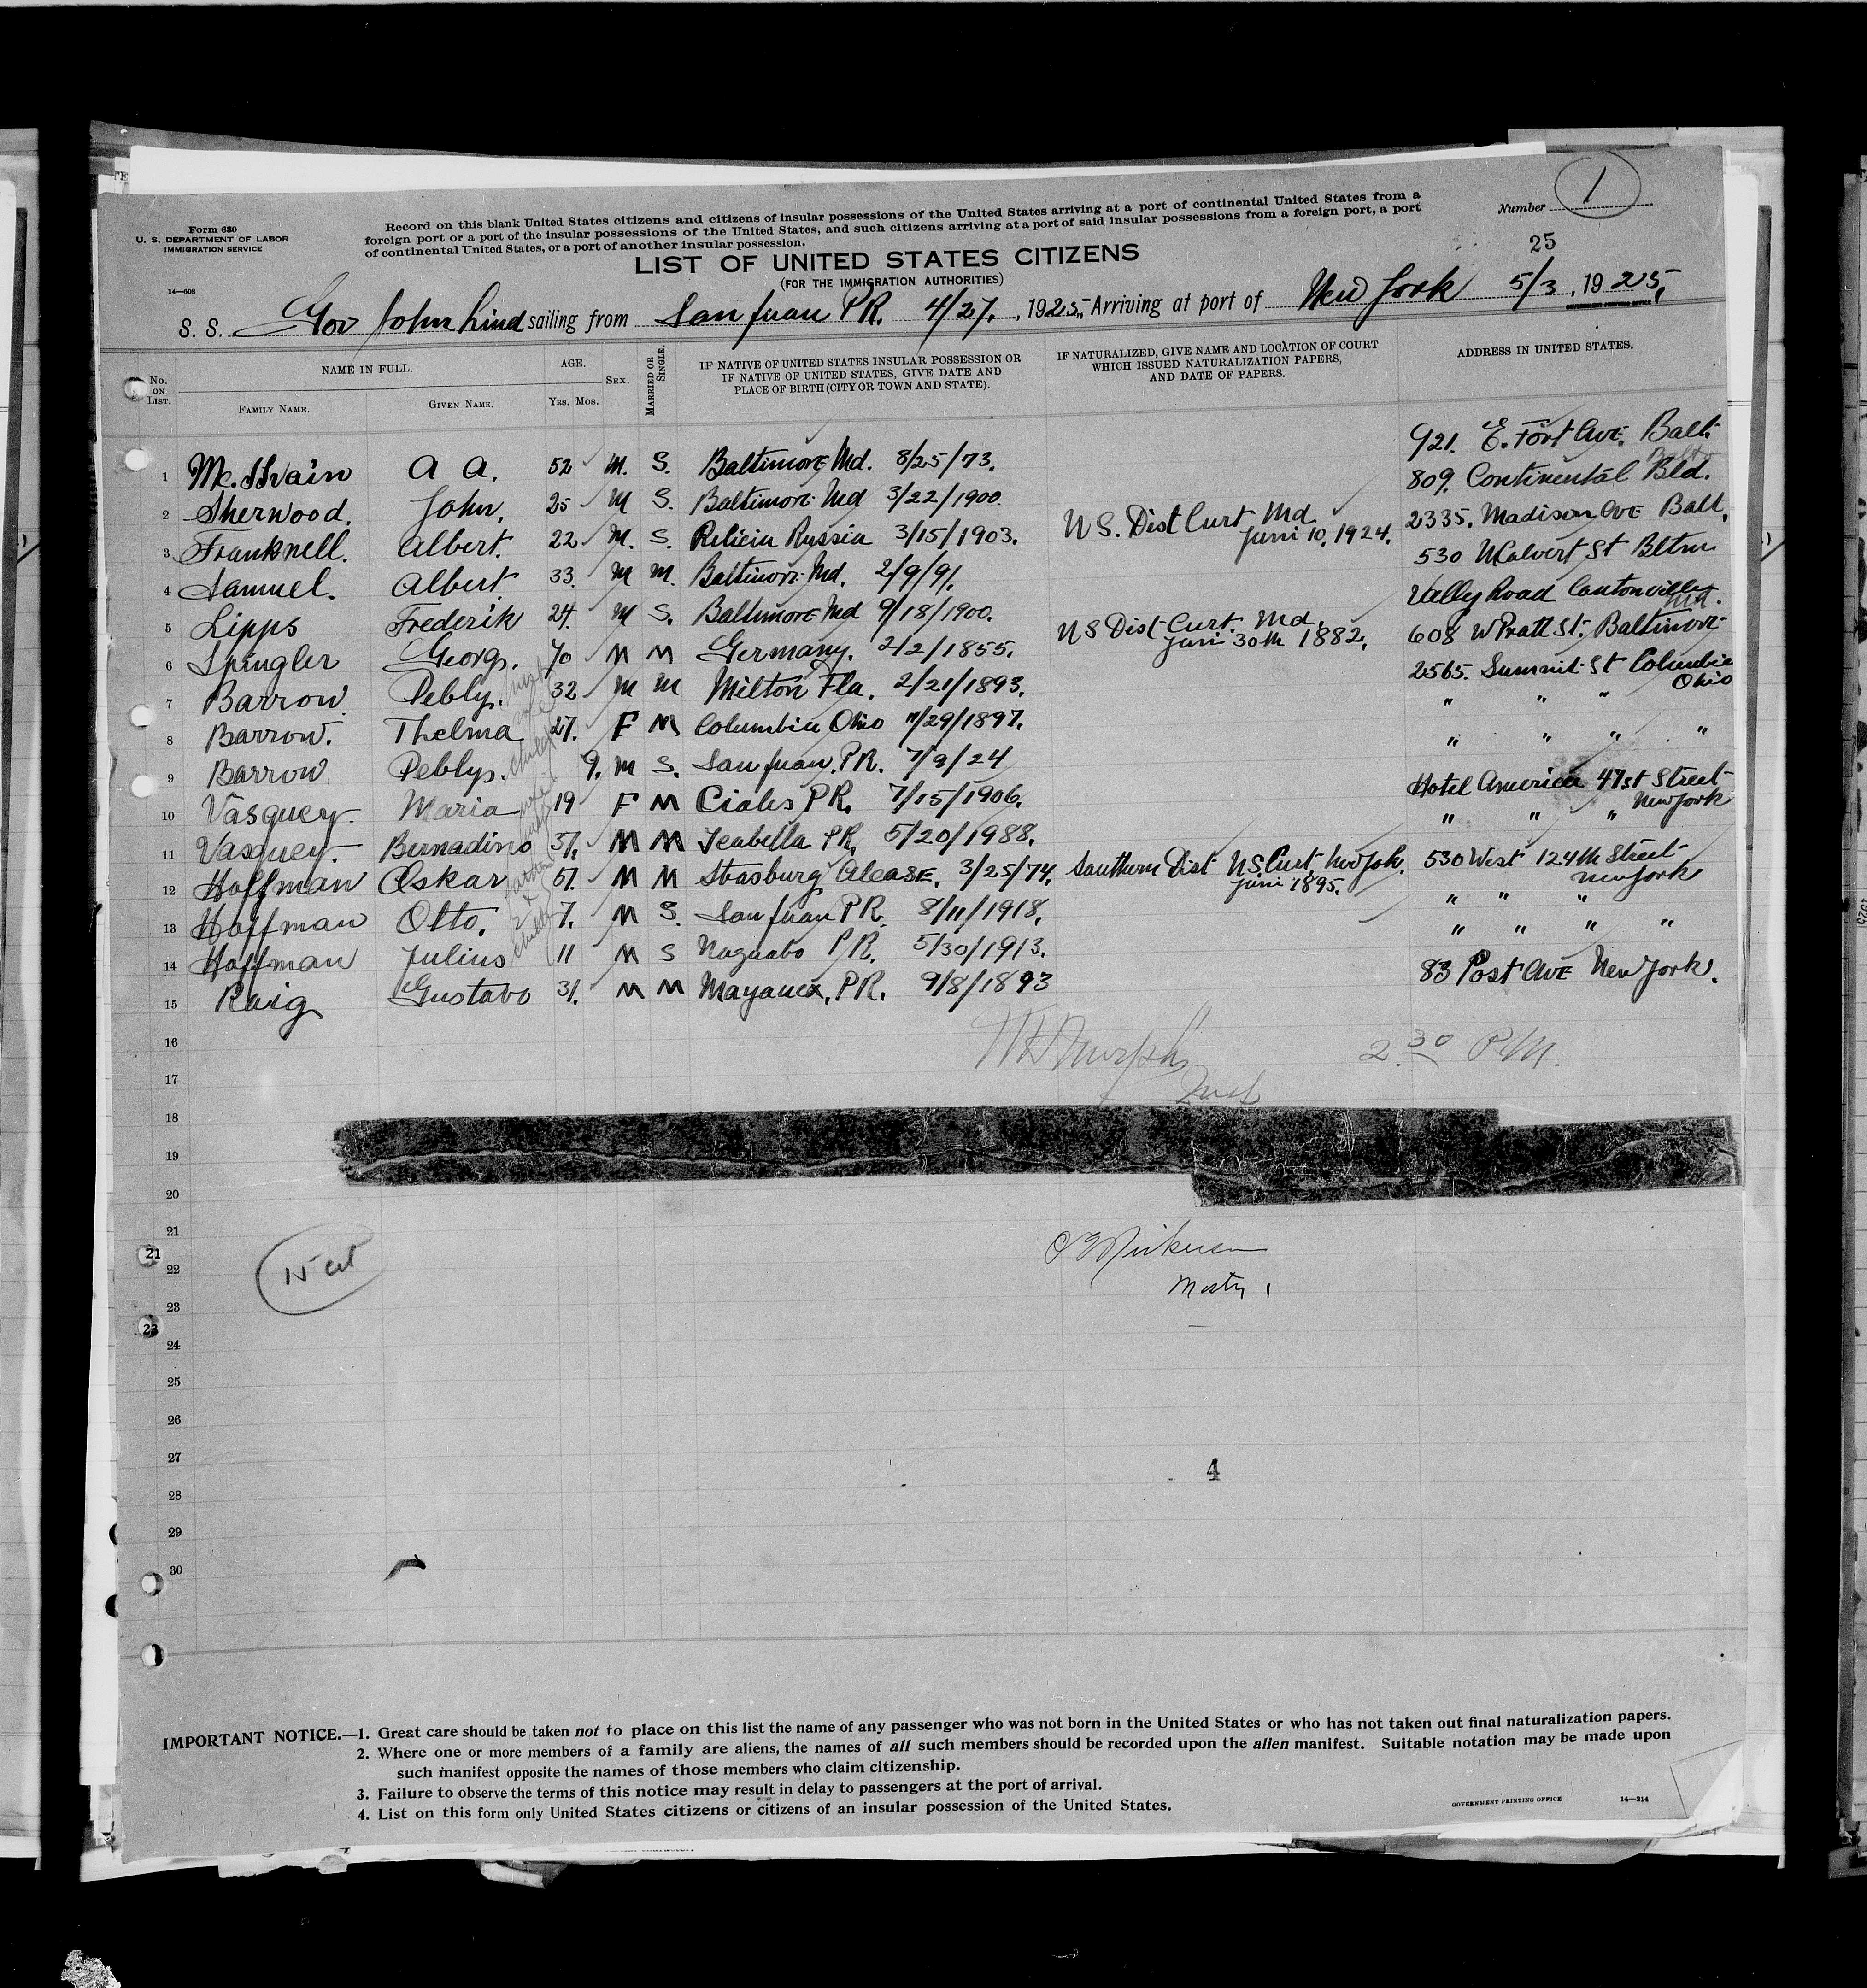 Form 630
U. S. DEPARTMENT OF LABOR
IMMIGRATION SERVICE
14—608
Record on this blank United States citizens and citizens of insular possessions of the United States arriving at a port of continental United States from a
foreign port or a port of the insular possessions of the United States, and such citizens arriving at a port of said insular possessions from a foreign port, a port
of continental United States, or a port of another insular possession.
Number 1
25
LIST OF UNITED STATES CITIZENS
(FOR THE IMMIGRATION AUTHORITIES)
S. S. Gov John Lind sailing from San Juan P.R. 4/27, 1925. Arriving at port of New York 5/3, 1925,
No. ON LIST.
NAME IN FULL.
FAMILY NAME.
GIVEN NAME.
AGE.
YRS. MOS.
SEX.
MARRIED OR SINGLE.
IF NATIVE OF UNITED STATES INSULAR POSSESSION OR
IF NATIVE OF UNITED STATES, GIVE DATE AND
PLACE OF BIRTH (CITY OR TOWN AND STATE).
IF NATURALIZED, GIVE NAME AND LOCATION OF COURT
WHICH ISSUED NATURALIZATION PAPERS,
AND DATE OF PAPERS.
ADDRESS IN UNITED STATES.
1 A A. 52 M. S. Baltimore Md. 8/25/73. 921. E. Fort Ave. Balt.
2 Sherwood. John. 25 M S. Baltimore Md 3/22/1900. 809. Continental Bld.
3 Franknell. Albert. 22 M. S. Russia 3/15/1903. U S. Dist Curt Md Juni 10, 1924. 2335. Madison Ave Balt.
4 Samuel. Albert. 33. M M. Baltimore Md. 2/9/91. 530 N Calvert St Bltm
5 Lipps Frederik 24. M S. Baltimore Md 9/18/1900. Valley Road Cantonville Md.
6 Spingler Georg. 70 M M Germany. 2/2/1855. U S Dist Curt. Md. Juni 30th 1882. 608 W Pratt St. Baltimore
7 Barrow. Pebly. 32 M M Milton Fla. 2/21/1893. 2565. Summit St Columbia Ohio
8 Barrow. Thelma 27. F M Columbia Ohio 11/29/1897. " " " "
9 Barrow Peblys. 9. M S. San Juan. P.R. 7/9/24 " " " "
10 Vasquey. Maria 19 F M Ciales P.R. 7/15/1906. Hotel America 47st Street New York
11 Vasquey. Bernadino 37. M M Isabella P.R. 5/20/1988. " " "
12 Hoffman Oskar 51. M M Strasburg Alease. 3/25/74. Southern Dist U.S. Curt. New York. Juni 1895. 530 West 124th Street New York
13 Hoffman Otto. 7. M S. San Juan P.R. 8/11/1918. " " "
14 Hoffman Julius 11 M S Naguabo P.R. 5/30/1913. " " " "
15 Raig Gustavo 31. M M Mayauex, P.R. 9/8/1893 83 Post Ave New York.
16
2 30 P.M.
17
18
19
20
21
21
22
23
23
24
25
26
27
4
28
29
30
IMPORTANT NOTICE.—1. Great care should be taken not to place on this list the name of any passenger who was not born in the United States or who has not taken out final naturalization papers.
2. Where one or more members of a family are aliens, the names of all such members should be recorded upon the alien manifest. Suitable notation may be made upon
such manifest opposite the names of those members who claim citizenship.
3. Failure to observe the terms of this notice may result in delay to passengers at the port of arrival.
4. List on this form only United States citizens or citizens of an insular possession of the United States.
GOVERNMENT PRINTING OFFICE
14—214